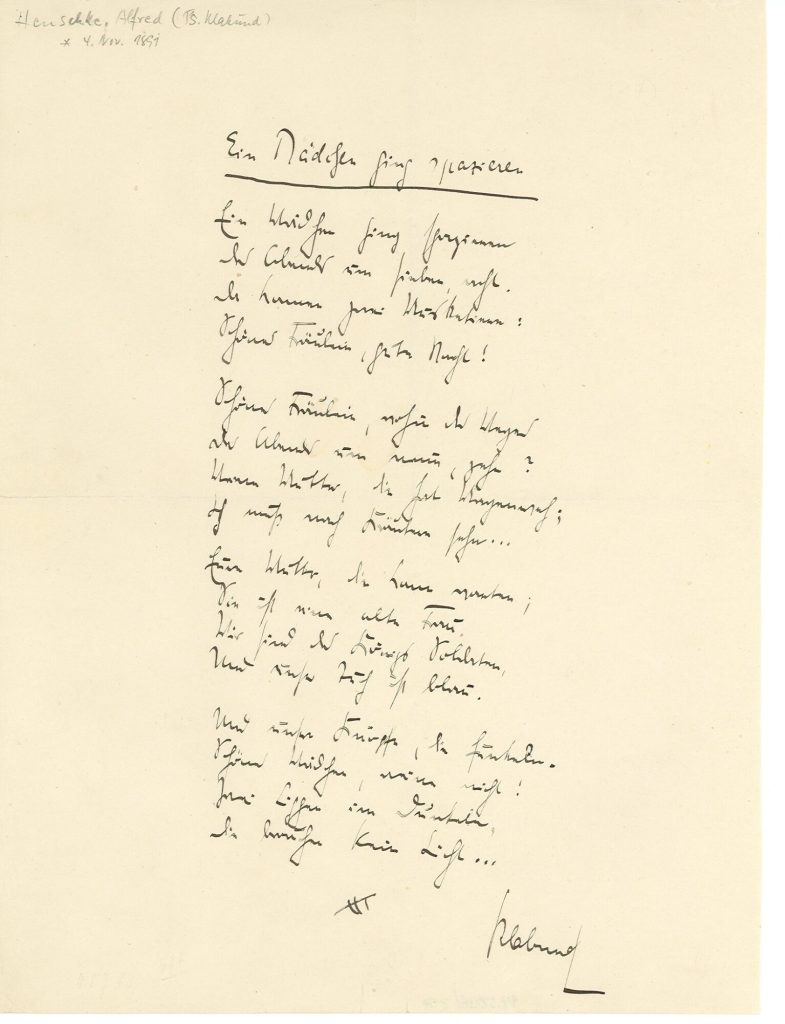 Henschke, Alfred (Ps. Klabund)
* 4. Nov. 1891
Ein Mädchen ging spazieren
Ein Mädchen ging spazieren
des Abends um sieben, acht.
da kamen zwei Musketiere:
Schönes Fräulein, gute Nacht!
Schönes Fräulein, wohin des Weges
des Abends um neun, zehn?
Meine Mutter, die hat Magenweh;
Ich muß nach Kräutern sehn...
Eure Mutter, die kann warten;
Sie ist eine alte Frau.
Wir sind des Königs Soldaten,
Und unser Tuch ist blau.
Und unsre Knöpfe, die funkeln.
Schöne Mädchen, weine nicht!
Zwei Lippen im Dunkeln,
die brauchen kein Licht...
Klabund